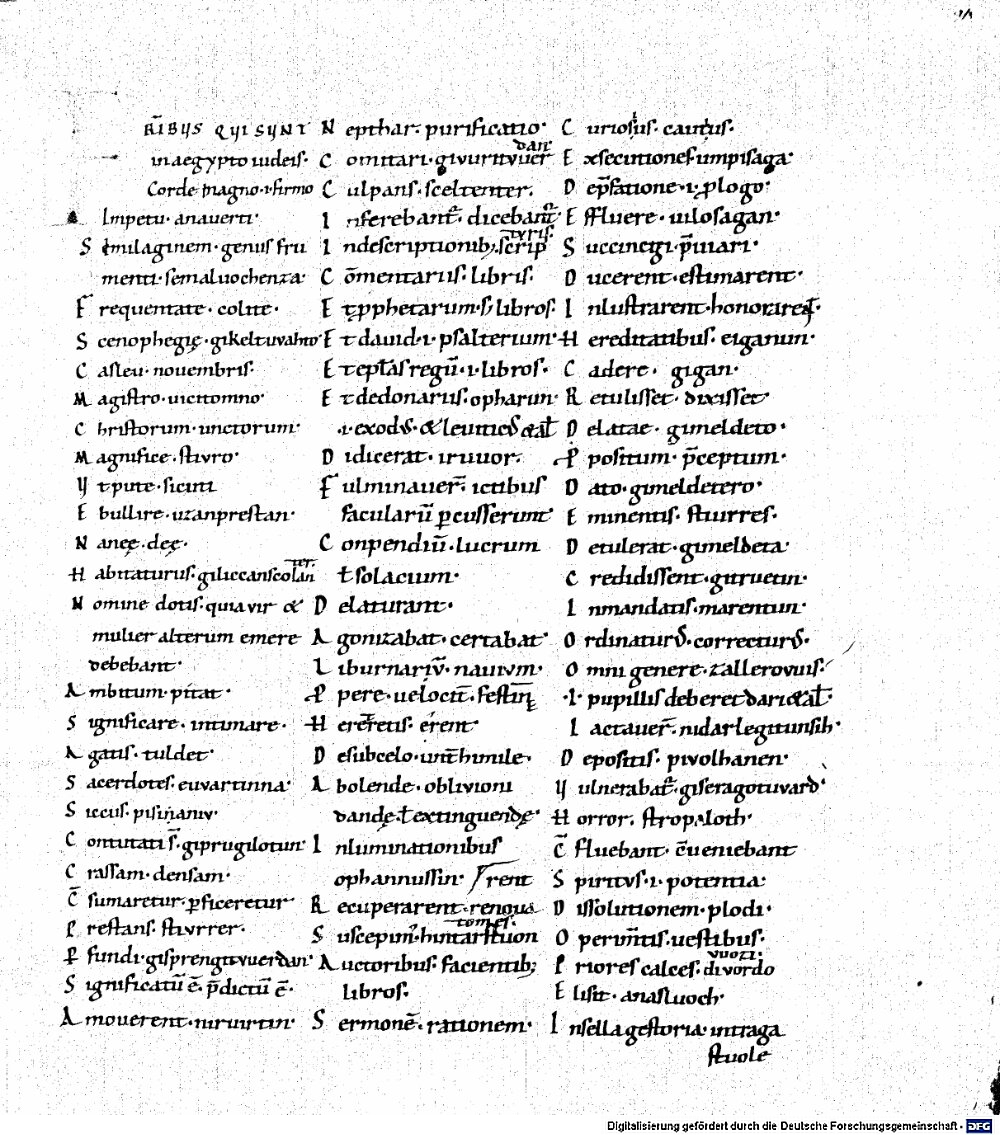 RĪBVS QVI SVNT
in aegypto iudeis.
Corde magno .i. firmo
Impetu. anauerti.
Similaginem. genus fru
menti. semaluochenza.
Frequentate. colite.
Scenophegię. gikeltuvahto
Casleu. nouembris.
Magistro. uicitomno.
Christorum. unctorum.
Magnifice. stivro.
Vtpute. sicuti
Ebullire. uzanprestan.
Naneę. deę.
Habitaturus. giliccanscolan
ter.
Nomine dotis. quia vir &
mulier alterum emere
debebant.
Ambitum. pitat.
Significare. intimare.
Agatis. tuldet.
Sacerdotes. euvartinna.
Siccus. pisinaniv.
Contutati s̄. giprugilotun.
Crassam. densam.
C̄sumaretur. ꝑficeretur
Prestans. stivrrer.
Ꝓfundi. gisprengituuerdan.
Significatū ē. p̄dictū ē.
Amouerent. niruirtin.
Nepthar. purificatio.
dan.
Comitari. givurituuer
Culpans. sceltenter.
Inferebant᷑. dicebant᷑
tyris.
Indescriptionib; scrip
Cōmentariis. libris.
Et ꝓphetarum. libros.
Et dauid .i. psalterium.
Et eptas regū .i. libros.
Et dedonariis. opharun
.i. exodus. & leuiticus & al
Didicerat. iruuor.
Fulminauer̄. ictibus
facularū ꝑcusserunt
Conpendiū. lucrum
ł solacium.
Delaturant.
Agonizabat. certabat.
Liburnariū. nauium.
Ꝓpere. uelocit̄. festin
Hereretis. erent
Desubcelo.
Abolende. oblivioni
dandę. ł extinguendę.
Inluminationibus
ophannussin.
rent
Recuperarent. renoua
tomes.
Suscepim. hintarstuon
Auctoribus. facientib;
libros.
Sermonē. rationem.
Curiosius. cautius.
Exsecutiones. umpisaga.
Dep̄fatione .i. ꝓlogo.
Effluere. uilosagan.
Succincgi. p̄uiari.
Ducerent. estimarent.
Inlustrarent. honorarent
Hereditatibus. eiganun.
Cadere. gigan.
Retulisset. dixisset.
Delatae. gimeldeto.
Ꝓpositum. p̄ceptum.
Dato. gimeldetero.
Eminentis. stiurres.
Detulerat. gimeldeta.
Credidissent. gitruetin.
Inmandatis. marentun.
Ordinaturus. correcturus.
Omni genere. zallerovuis.
.I. pupillis deberet dari & al.
Iactauer̄. nidarlegitunsih.
Depositis. pivolhanen.
Vulnerabat᷑. giseragotuvard.
Horror. stropaloth.
C̄fluebant. c̄ueniebant
Spiritus .i. potentia.
Dissolutionem. plodi.
Operim̄tis. uestibus.
vuozi.
Priores calces. divordo
Elisit. anasluoch.
Insella gestoria. intraga
stuole